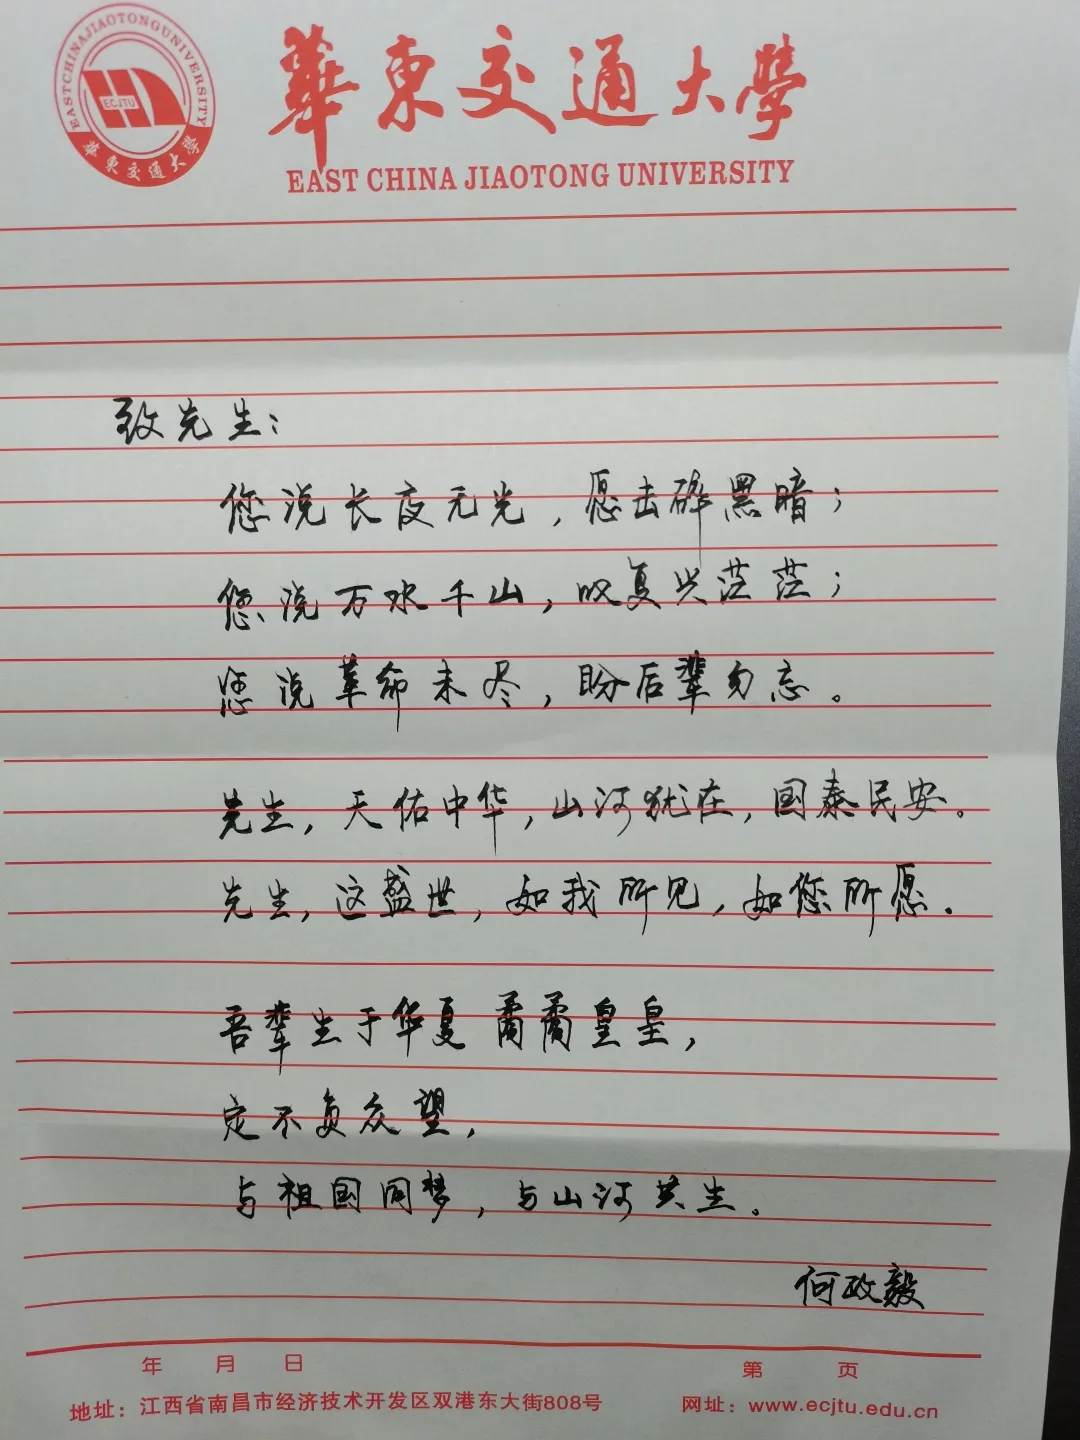 EASTCHINAJIAOTONGUNIVERSITY
ECJTU
華東交通大學
華東交通大學
EAST CHINA JIAOTONG UNIVERSITY
致先生：
您说长夜无光，愿击碎黑暗；
您说万水千山，叹复兴茫茫；
您说革命未尽，盼后辈勿忘。
先生，天佑中华，山河犹在，国泰民安。
先生，这盛世，如我所见，如您所愿.
吾辈生于华夏矞矞皇皇，
定不负众望，
与祖国同梦，与山河共生。
何政毅
年 月 日
第 页
地址：江西省南昌市经济技术开发区双港东大街808号
网址：www.ecjtu.edu.cn